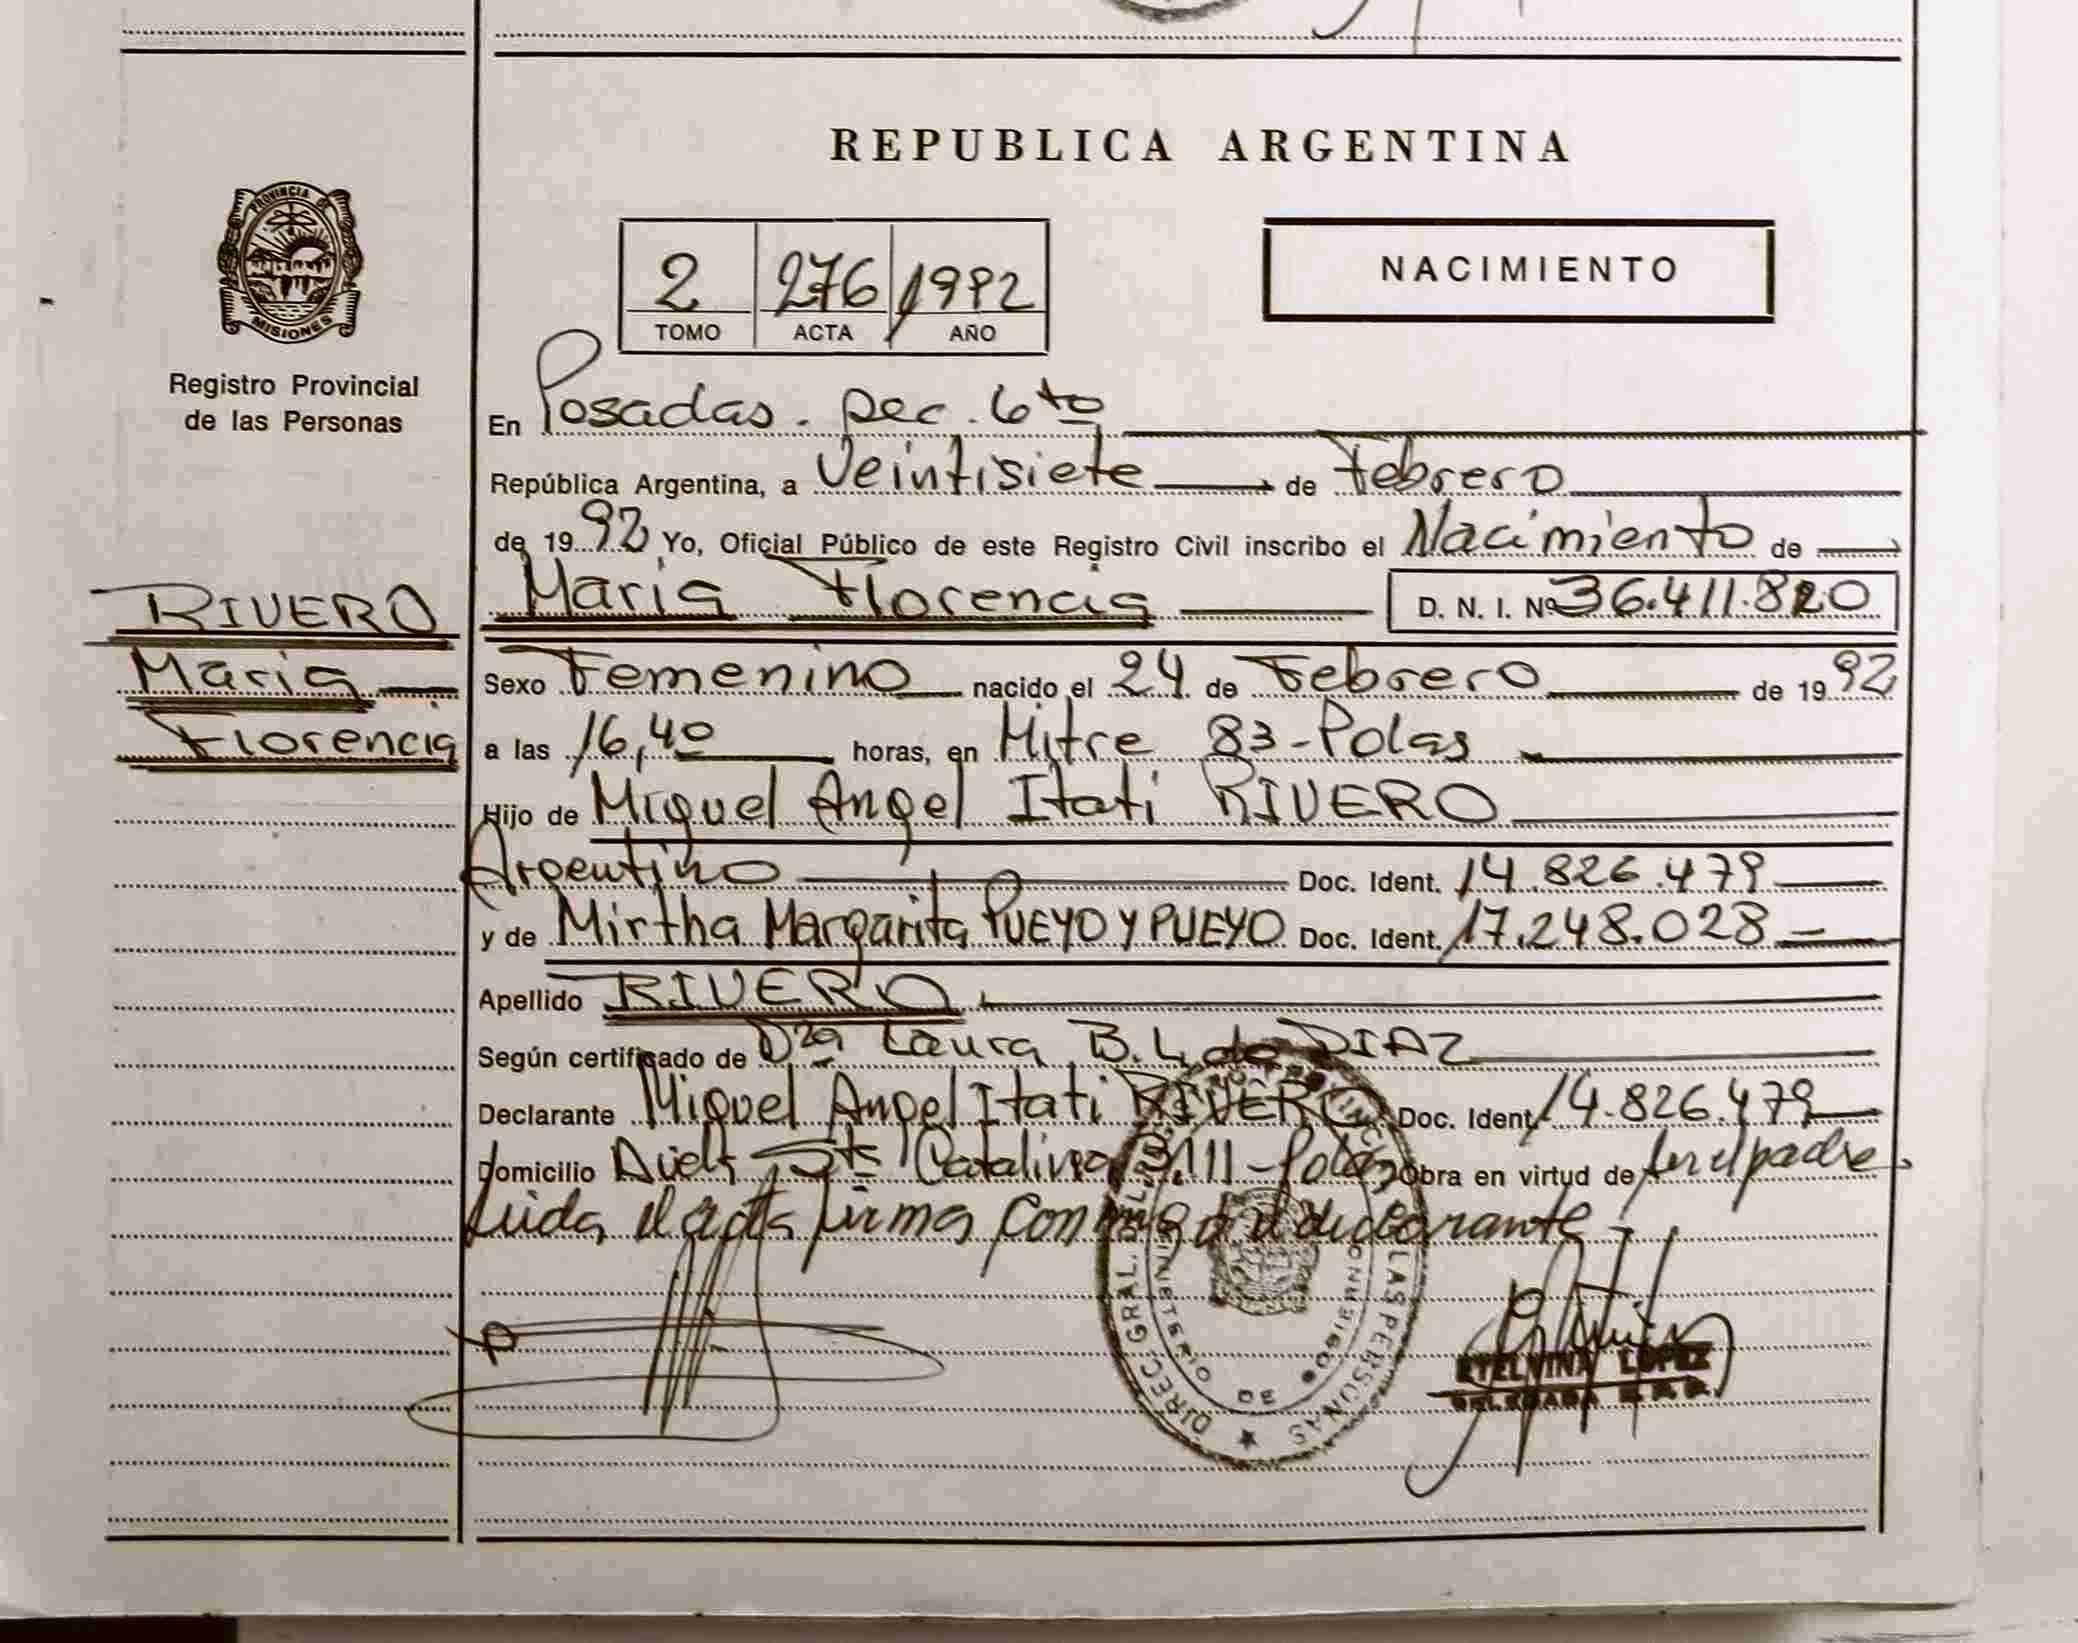 REPUBLICA ARGENTINA
NACIMIENTO
2 276 1992
TOMO ACTA AÑO
PROVINCIA DE
MISIONES
Registro Provincial
de las Personas
En Posadas. Sec. 6to
República Argentina, a Veintisiete de Febrero
de 1992 Yo, Oficial Público de este Registro Civil inscribo el Nacimiento de
RIVERO
Maria
Florencia
Maria Florencia D. N. I. Nº 36.411.820
Sexo Femenino nacido el 24 de Febrero de 1992
a las 16,40 horas, en Mitre 83-Pdas
Hijo de Miguel Angel Itati RIVERO
Argentino Doc. Ident. 14.826.479
y de Mirtha Margarita PUEYO Y PUEYO Doc. Ident. 17.248.028
Apellido RIVERO
Según certificado de Dra Laura B. L. de DIAZ
Declarante Miguel Angel Itati RIVERO Doc. Ident. 14.826.479
Domicilio Sta Catalina 3.111-Pdas Obra en virtud de ser el padre
Leida el acta firma conmigo el declarante
DIREC. GRAL. LAS PERSONAS
MINISTERIO DE GOBIERNO
ETELVINA LOPEZ
DELEGADA